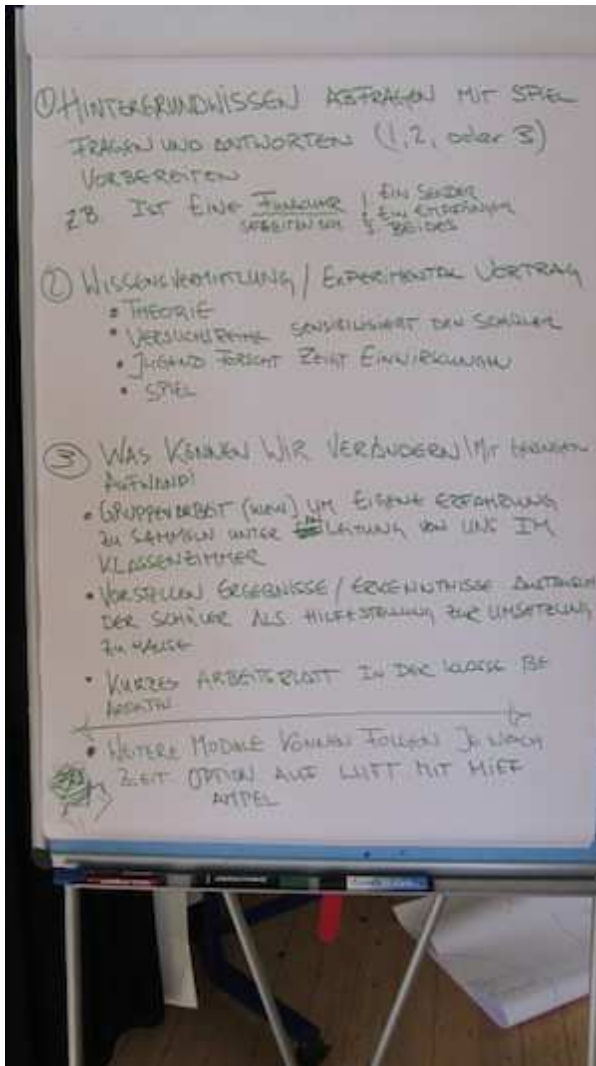 ① HINTERGRUNDWISSEN ABFRAGEN MIT SPIEL
FRAGEN UND ANTWORTEN (1, 2, oder 3)
VORBEREITEN
ZB IST EINE FUNKUHR 1 EIN SENDER
2 EIN EMPFÄNGER
3 BEIDES
② WISSENSVERMITTLUNG / EXPERIMENTAL VORTRAG
• THEORIE
• VERSUCHSREIHE SENSIBILISIERT DEN SCHÜLER
• JUGEND FORSCHT ZEIGT EINWIRKUNGEN
• SPIEL
③ WAS KÖNNEN WIR VERÄNDERN / MIT GERINGEM
AUFWAND!
• GRUPPENARBEIT (KLEIN) UM EIGENE ERFAHRUNG
ZU SAMMELN UNTER LEITUNG VON UNS IM
KLASSENZIMMER
• VORSTELLEN ERGEBNISSE / ERKENNTNISSE AUSTAUSCH
DER SCHÜLER ALS HILFESTELLUNG ZUR UMSETZUNG
ZU HAUSE
• KURZES ARBEITSBLATT IN DER KLASSE BE
ARBEITEN
• WEITERE MODULE KÖNNEN FOLGEN JE NACH
ZEIT OPTION AUF LUFT MIT MIEF
AMPEL